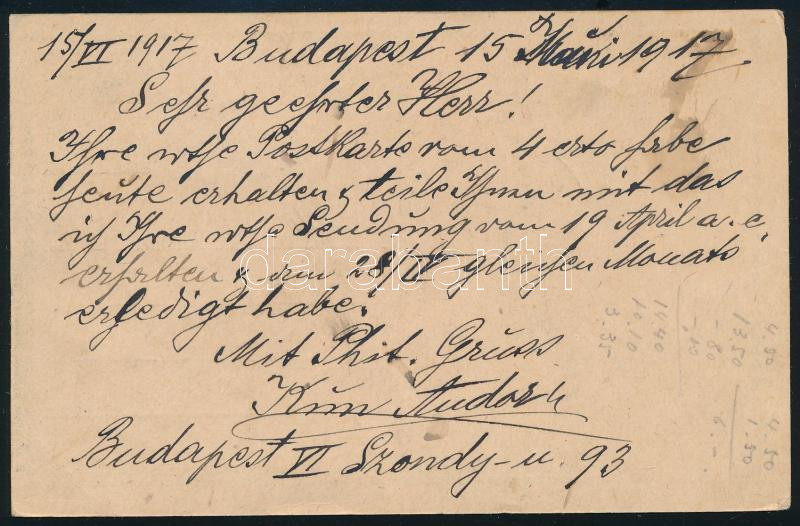 15/VI 1917 Budapest 15 1917
Sehr geehrter Herr!
Ihre wthe Postkarte vom 4 crto habe
heute erhalten & teile Ihnen mit das
ich Ihre wthe Sendung vom 19 April a. c.
erhalten & am 28/IV gleichen Monats
erledigt habe.
Mit Phil. Gruss
Kun Andor
Budapest VI Szondy-u. 93
darabanth.com
4.50
13 50
-80
14.40
10.10
3.35
4.50
1.50
6.-